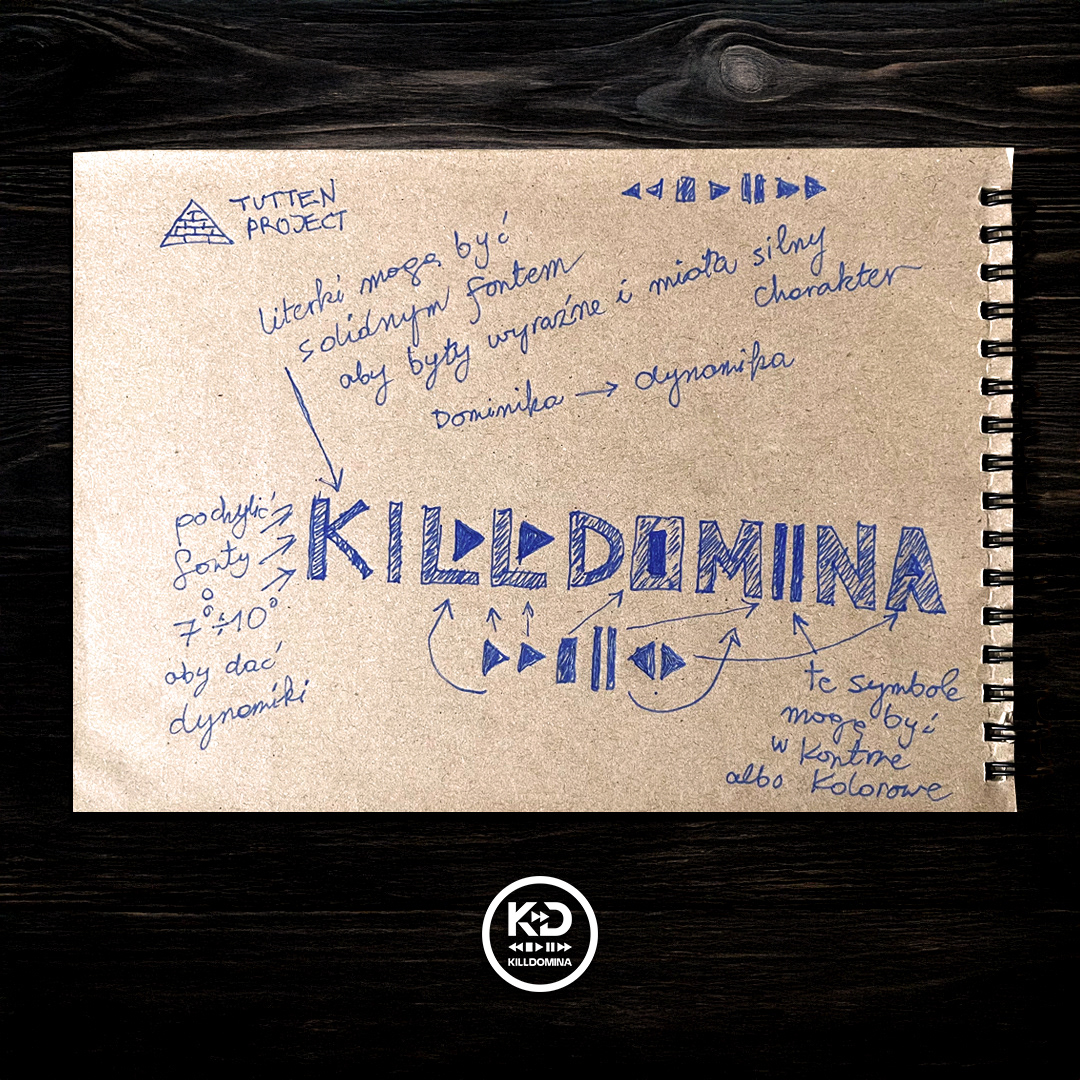 TUTTEN
PROJECT
literki mogą być
solidnym fontem
aby były wyraźne i miała silny
charakter
Dominika → dynamika
KILLDOMINA
pochylić
fonty
7°÷10°
aby dać
dynamiki
te symbole
mogę być
w kontrze
albo kolorowe
KD
KILLDOMINA